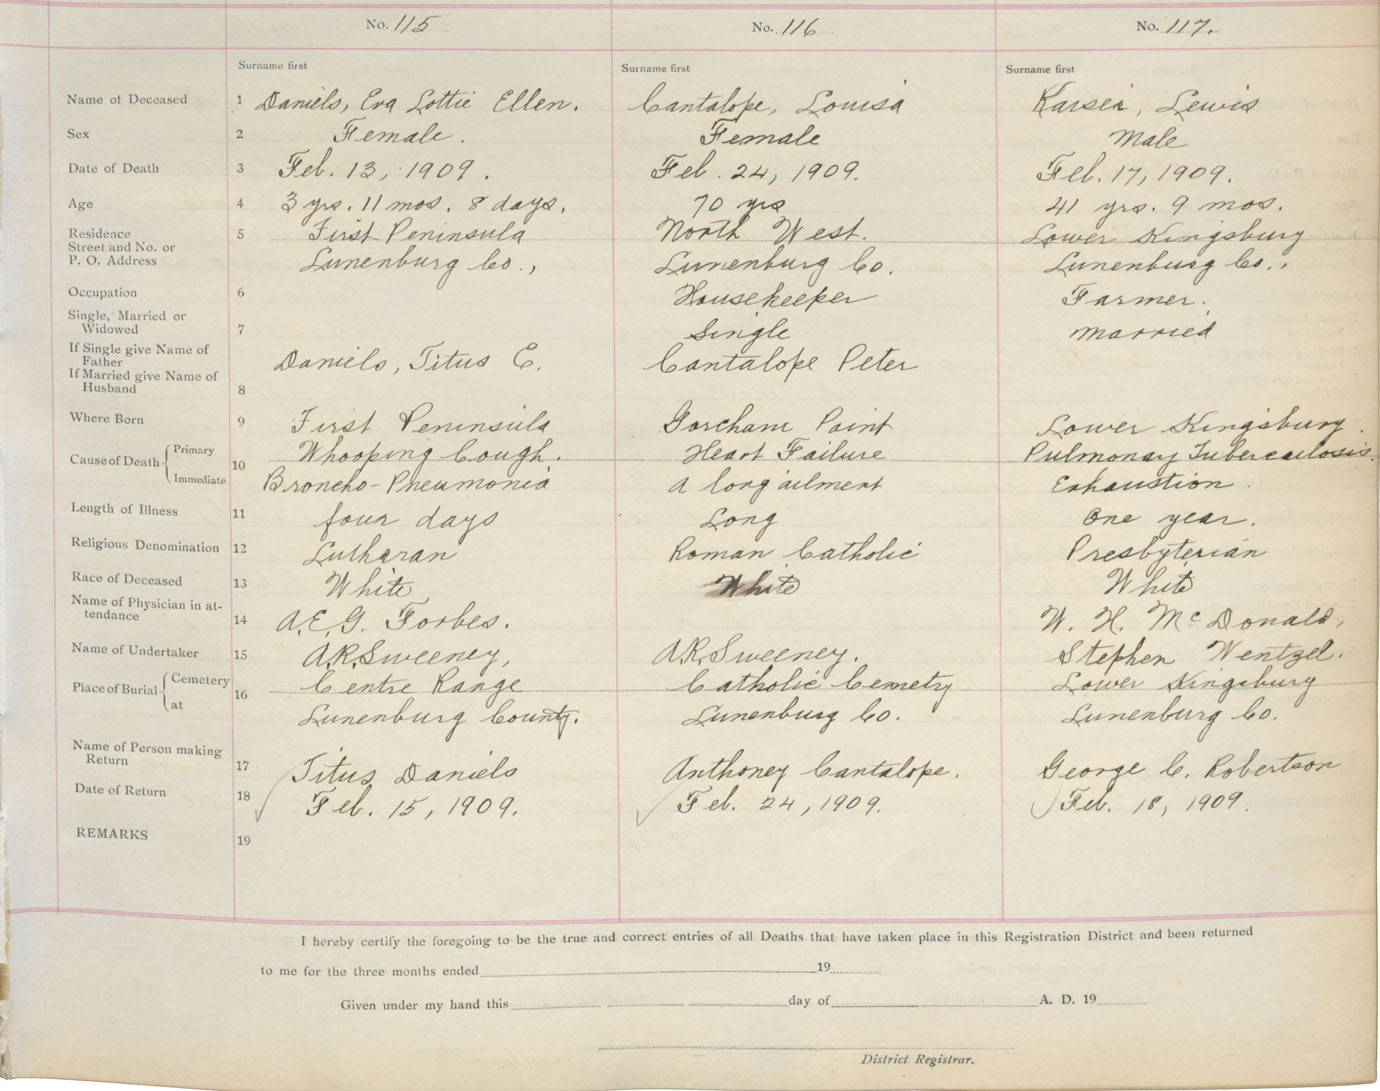 No. 115 No. 116 No. 117.
Surname first Surname first Surname first
Name of Deceased 1 Daniels, Eva Lottie Ellen. Cantalope, Louisa Karser, Lewis
Sex 2 Female. Female Male
Date of Death 3 Feb. 13, 1909. Feb. 24, 1909. Feb. 17, 1909.
Age 4 3 yrs. 11 mos. 8 days. 70 yrs 41 yrs. 9 mos.
Residence 5 First Peninsula North West. Lower Kingsbury
Street and No. or
P. O. Address Lunenburg Co., Lunenburg Co. Lunenburg Co.,
Occupation 6 Housekeeper Farmer.
Single, Married or
Widowed 7 Single Married
If Single give Name of
Father Daniels, Titus E. Cantalope Peter
If Married give Name of
Husband 8
Where Born 9 First Peninsula Gorcham Point Lower Kingsbury.
Cause of Death Primary 10 Whooping Cough. Heart Failure Pulmonary Tuberculosis.
Immediate Broncho-Pneumonia A long ailment Exhaustion.
Length of Illness 11 four days Long One year.
Religious Denomination 12 Lutharan Roman Catholic Presbyterian
Race of Deceased 13 White White White
Name of Physician in at-
tendance 14 A.E.G. Forbes. W. H. McDonald,
Name of Undertaker 15 A.R. Sweeney, A.R. Sweeney. Stephen Wentzel.
Place of Burial Cemetery 16 Centre Range Catholic Cemetry Lower Kingsbury
at Lunenburg County. Lunenburg Co. Lunenburg Co.
Name of Person making
Return 17 Titus Daniels Anthoney Cantalope. George C. Robertson
Date of Return 18 Feb. 15, 1909. Feb. 24, 1909. Feb. 18, 1909.
REMARKS 19
I hereby certify the foregoing to be the true and correct entries of all Deaths that have taken place in this Registration District and been returned
to me for the three months ended 19
Given under my hand this day of A. D. 19
District Registrar.